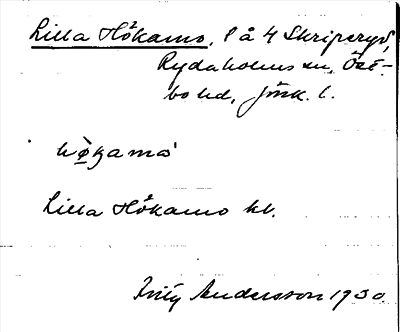 Lilla Hökamo, P å 4 Skriperyd,
Rydaholms sn, Öst-
bo hd, Jönk. l.
Lilla Hökamo kl.
Fritz Andersson 1930